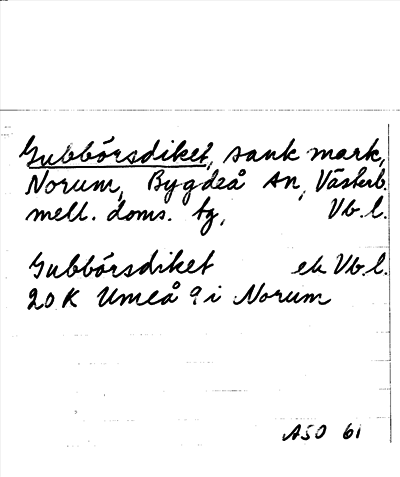 Gubbörsdiket, sank mark,
Norum, Bygdeå sn, Västerb.
mell. doms. tg, Vb. l.
Gubbörsdiket ek Vb. l.
20 K Umeå 9 i Norum
ASO 61